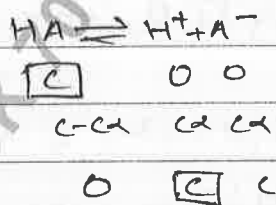 HA ⇌ H⁺ + A⁻
C O O
C-Cα Cα Cα
O C C